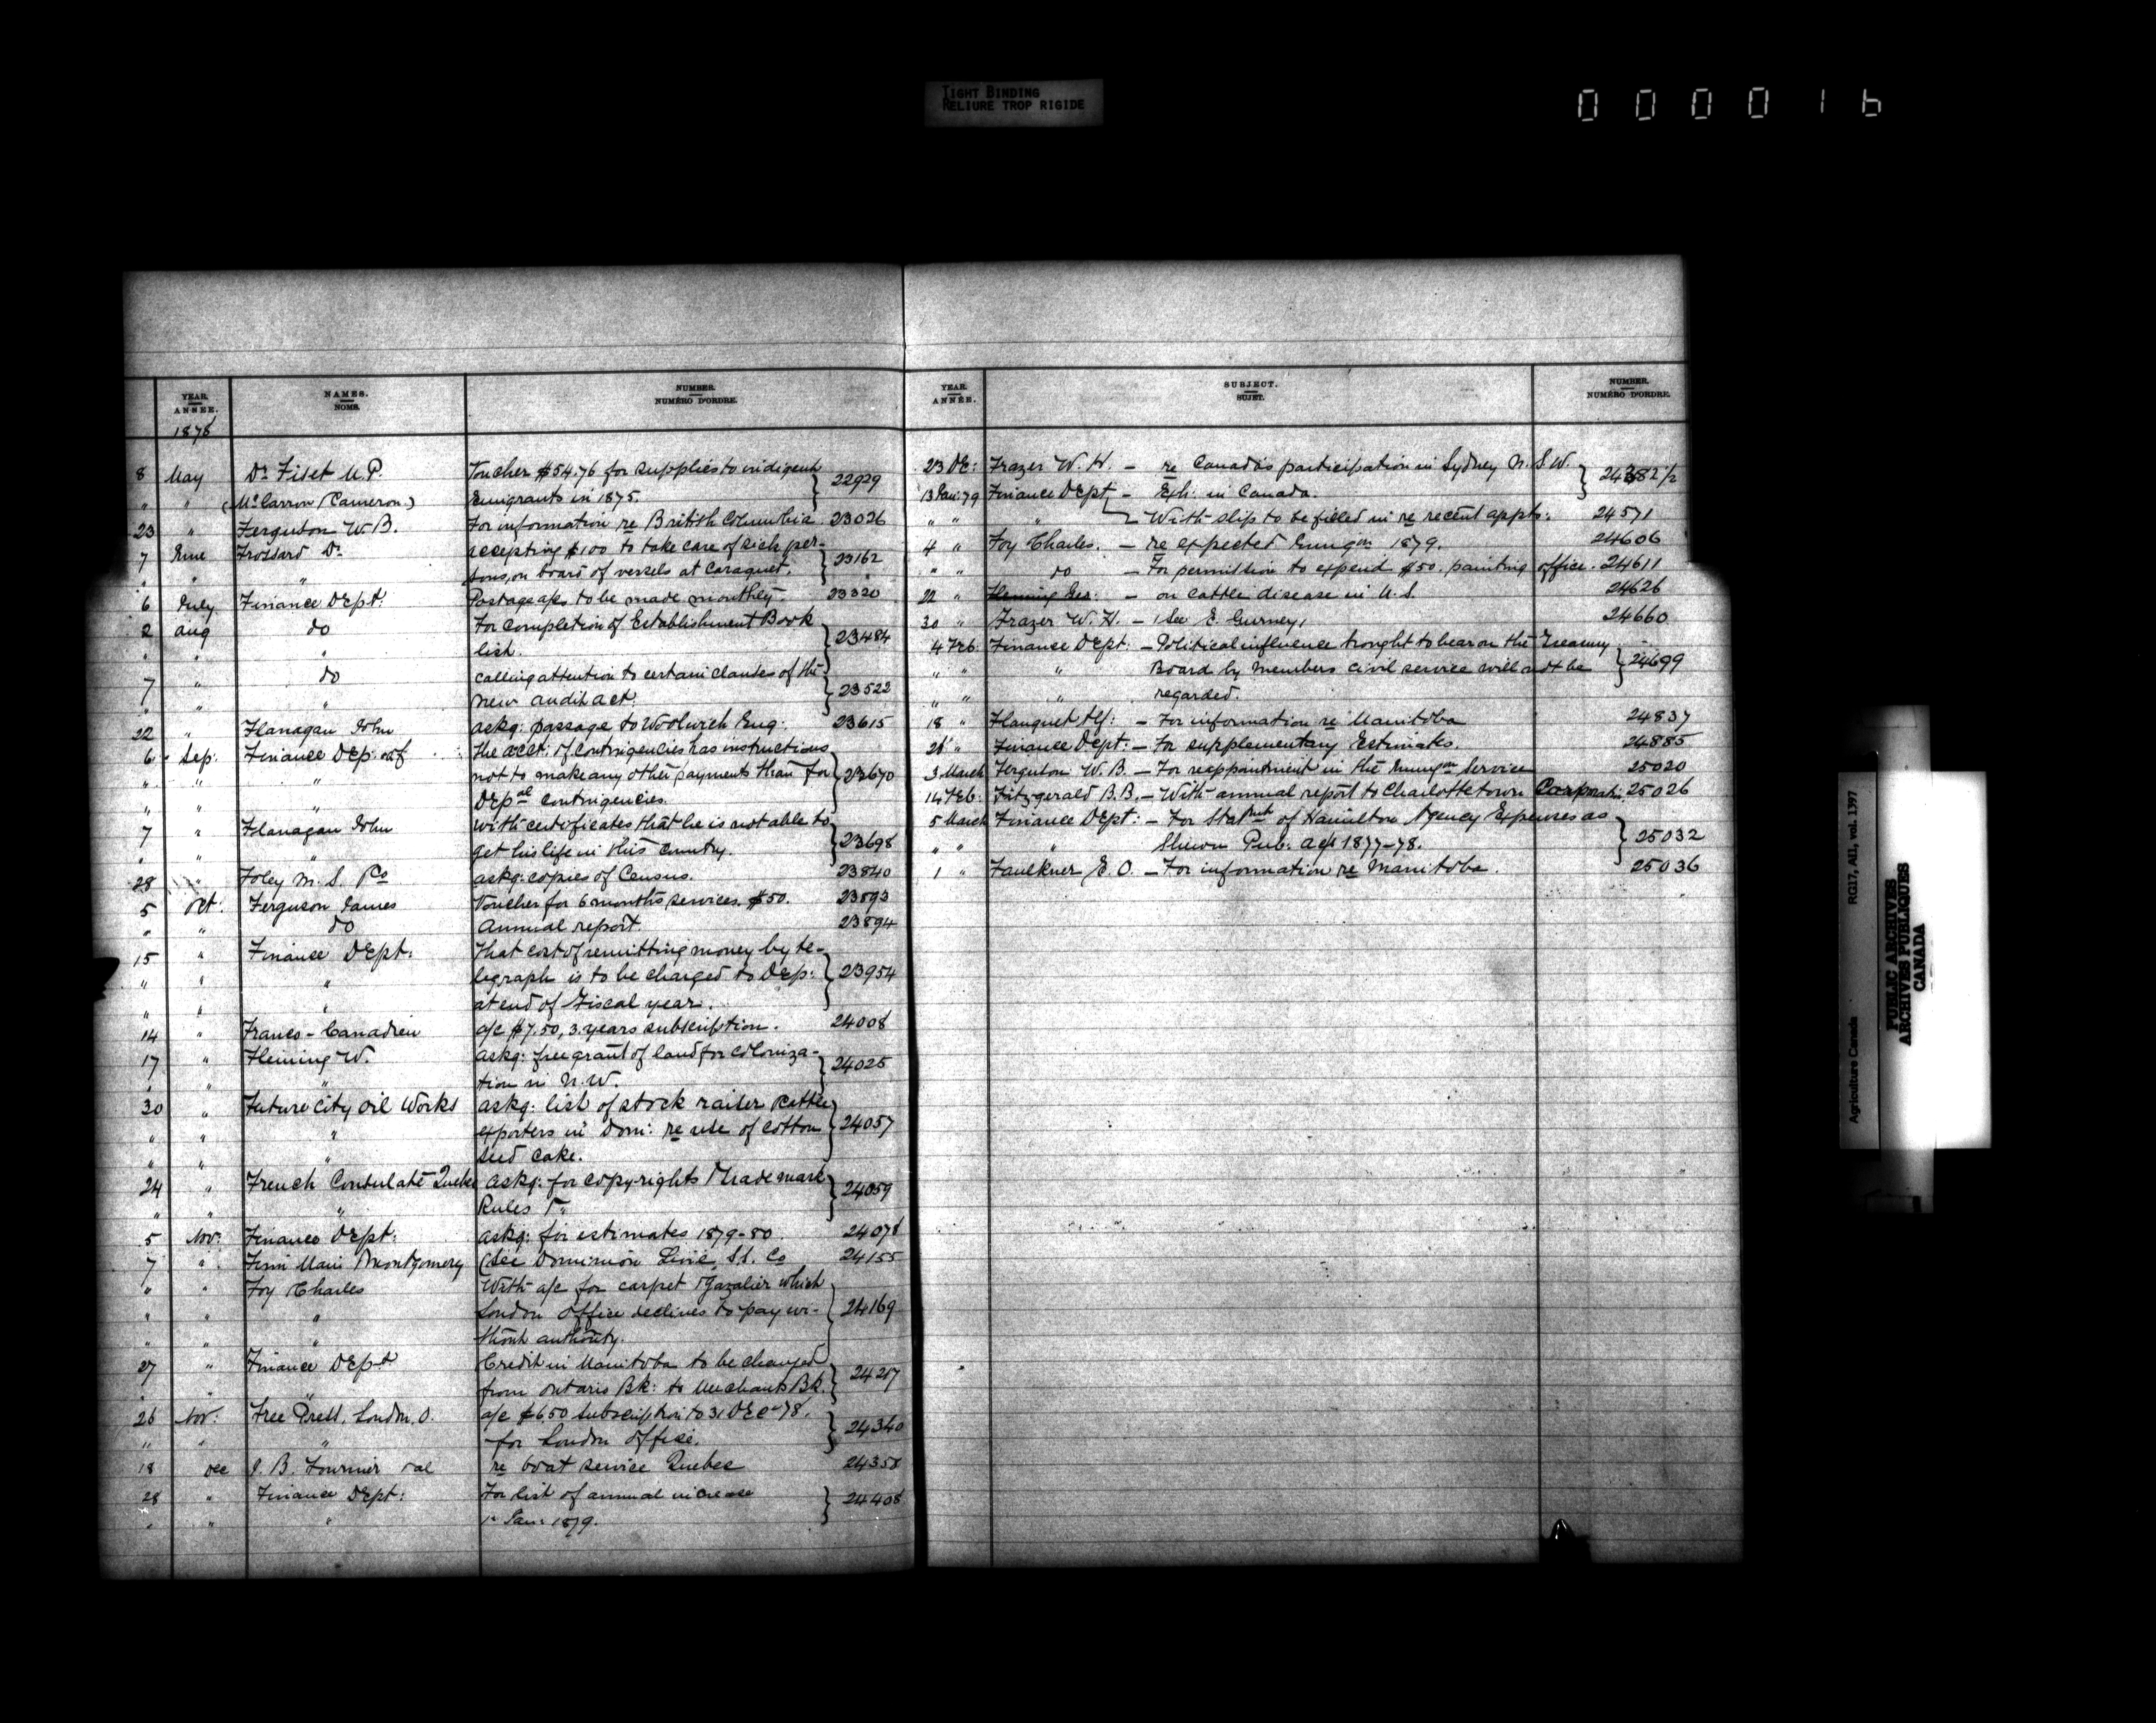 TIGHT BINDING
RELIURE TROP RIGIDE
0 0 0 0 1 6
YEAR. ANNÉE. NAMES. NOMS. NUMBER. NUMÉRO D'ORDRE.
1878
8 May Dr. Fiset M.P. Voucher $54.76 for supplies to indigent
" " (McCarron (Cameron) Emigrants in 1875. 22929
23 " Ferguson W.B. For information re British Columbia. 23026
7 June Frossard Dr. accepting $100 to take care of sick per-
" " " sons, on board of vessels at Caraquet. 23162
6 July Finance Dept: Postage a/cs to be made monthly. 23320
2 Aug do For completion of Establishment Book
" " " list. 23484
7 " do calling attention to certain clauses of the
" " " new audit act. 23522
22 " Flanagan John askg: passage to Woolwich Eng. 23615
6 Sep: Finance Dep: of The acct. of contingencies has instructions
" " " not to make any other payments than for 23670
" " " Depal contingencies.
7 " Flanagan John With certificates that he is not able to
" " " get his life in this Country. 23698
28 " Foley M.S. & Co askg: copies of Census. 23840
5 Oct. Ferguson James Voucher for 6 months services. $50. 23893
" " do Annual report. 23894
15 " Finance Dept: That cost of remitting money by te-
" " " legraph is to be charged to Dep: 23954
" " " at end of Fiscal year.
14 " Franco-Canadien a/c $7.50, 3 years subscription. 24008
17 " Fleming W. askg: free grant of land for coloniza-
" " " tion in N.W. 24025
30 " Future City Oil Works askg: list of stock raiser & cattle
" " " exporters in Dom: re use of cotton 24057
" " " seed cake.
24 " French Consulate Quebec askg: for copy-rights & Trade mark
" " " Rules &c 24059
5 Nov: Finance Dept: askg: for estimates 1879-80. 24078
7 " Finn Main & Montgomery (see Dominion Line, S.S. Co 24155
" " Foy Charles With a/c for carpet & gazalier which
" " " London Office declines to pay wi- 24169
" " " thout authority.
27 " Finance Dept Credit in Manitoba to be changed
" " from Ontario Bk: to Merchants Bk. 24217
26 Nov: Free Press, London, O. a/c $6.50 subscription to 31 Dec 78.
" " " for London Office. 24340
18 Dec J.B. Fournier & al re boat service Quebec 24358
28 " Finance Dept: For list of annual increase
" " " 1 Jan: 1879. 24408
YEAR. ANNÉE. SUBJECT. SUJET. NUMBER. NUMÉRO D'ORDRE.
23 De: Frazer W.H. — re Canada's participation in Sydney N.S.W. 24382 1/2
13 Jan: 79 Finance Dept — Exh: in Canada.
" " " With slip to be filled in re recent appts. 24571
4 " Foy Charles. — re expected Emigon 1879. 24606
" " do — For permission to expend $50. painting office. 24611
22 " Fleming Geo: — on cattle disease in U.S. 24626
30 " Frazer W.H. — (See E. Gurney) 24660
4 Feb. Finance Dept: — Political influence brought to bear on the Treasury
" " " Board by members civil service will not be 24699
" " " regarded.
18 " Flanquet Alf: — For information re Manitoba 24837
21 " Finance Dept: — For supplementary Estimates. 24885
3 March Ferguson W.B. — For reappointment in the Emigon Service 25020
14 Feb. Fitzgerald B.B. — With annual report to Charlottetown Corporati: 25026
5 March Finance Dept: — For Statmt of Hamilton Agency Expenses as
" " " Shewn Pub: a/cs 1877-78. 25032
1 " Faulkner E.O. — For information re Manitoba. 25036
Agriculture Canada RG17, AII, vol. 1397
PUBLIC ARCHIVES
ARCHIVES PUBLIQUES
CANADA